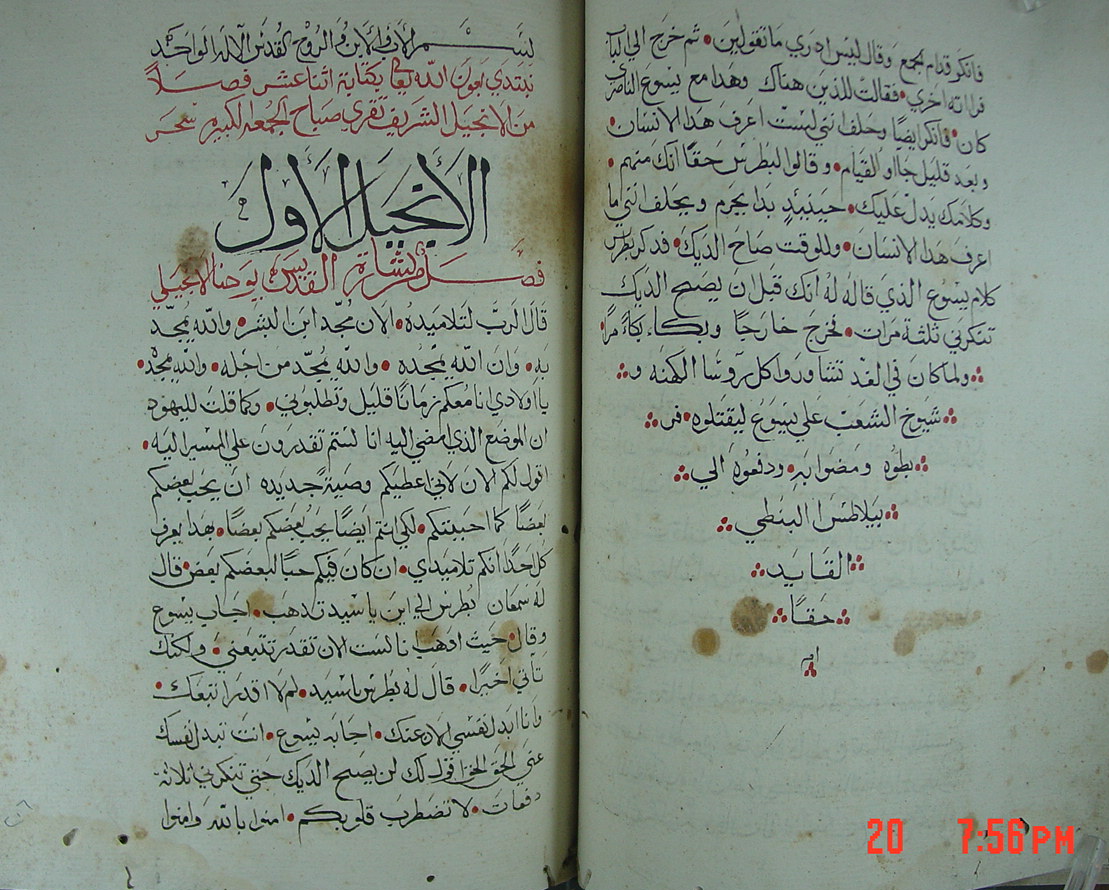 فانكر قدام الجمع وقال ليس ادري ما تقولين • ثم خرج الي الباب
فراته اخري • فقالت للذين هناك وهدا مع يسوع الناصري
كان • فانكر ايضًا وحلف انني ليست اعرف هدا الانسان •
وبعد قليل جااو القيام • وقالوا لبطرس حقًا انك منهم •
وكلامك يدل عليك • حينيدٍ بدا يحرم ويحلف انني ما
اعرف هدا الانسان • وللوقت صاح الديك • فدكر بطرس
كلام يسوع الذي قاله له انك قبل ان يصيح الديك
تنكرني ثلثة مرات • فخرج خارجًا وبكاء بكاءً مرًا •
ولما كان في الغد تشاوروا كل روسا الكهنه و
شيوخ الشعب علي يسوع ليقتلوه • فر
بطوه ومضوا به • ودفعوه الي
بيلاطس البنطي
القايد
حقًا
ام
بسم الاب والابن والروح القدس الاله الواحد
نبتدي بعون الله تعا بكتابة اثنا عشر فصلاً
من الانجيل الشريف تقري صباح الجمعه الكبيره سحر
الانجيل الاول
فصل من بشارة القديس يوحنا الانجيلي
قال الرب لتلاميده • الان مجد ابن البشر • والله مجد
به • وان الله مجده • والله مجد من اجله • والله مجد •
يا اولادي انا معكم زمانًا قليل وتطلبوني • وكما قلت لليهود
ان الموضع الذي امضي اليه انا لستم تقدرون علي المسير اليه •
اقول لكم الان لاني اعطيكم وصيةً جديده ان يحب بعضكم
بعضًا كما احببتكم • لكي انتم ايضًا يحب بعضكم بعضًا • هدا يعرف
كل احدًا انكم تلاميدي • ان كان فيكم حبًا لبعضكم بعض • قال
له سمعان بطرس الي اين يا سيد تدهب • اجاب يسوع
وقال • حيث ادهب انا لست الان تقدر تتبعني • ولكنك
تاتي اخيرًا • قال له بطرس يا سيد • لم لا اقدر اتبعك •
وانا ابدل نفسي الان عنك • اجابه يسوع • انت تبدل نفسك
عني الحق الحق اقول لك لن يصيح الديك حتي تنكرني ثلاثة
دفعات • لا تضطرب قلوبكم • امنوا بالله وامنوا
20 7:56 PM